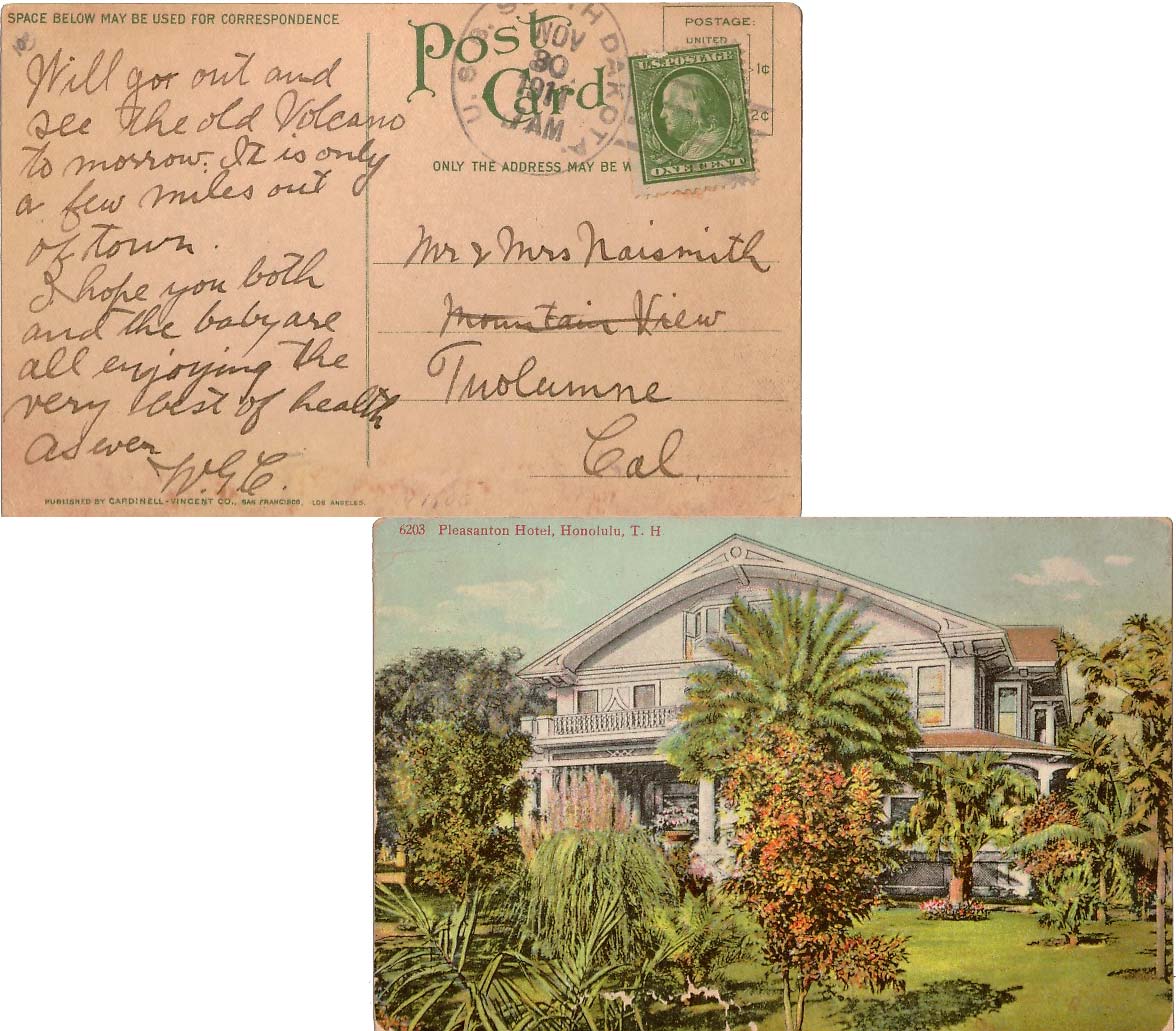 SPACE BELOW MAY BE USED FOR CORRESPONDENCE
Will go out and
see the old Volcano
to morrow. It is only
a few miles out
of town.
I hope you both
and the baby are
all enjoying the
very best of health
As ever
W.G.C.
PUBLISHED BY CARDINELL-VINCENT CO., SAN FRANCISCO, LOS ANGELES.
Post Card
U.S.S. SOUTH DAKOTA
NOV
30
5 AM
POSTAGE:
UNITED
1¢
2¢
U.S. POSTAGE
ONE CENT
ONLY THE ADDRESS MAY BE W
Mr & Mrs Naismith
Mountain View
Tuolumne
Cal.
6203 Pleasanton Hotel, Honolulu, T. H